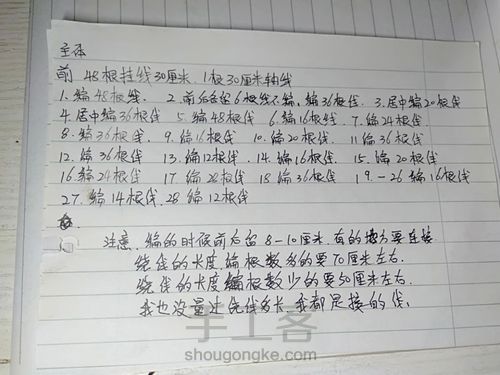 主体
前 48根挂线30厘米、1根30厘米轴线
1.编48根线、 2.前后各留6根线不编,编36根线、3.居中编20根线
4.居中编36根线 5.编48根线 6.编16根线、7.编24根线、
8.编36根线、9.编16根线 10.编20根线 11编36根线
12.编36根线 13.编12根线、14.编16根线 15.编20根线
16编24根线 17编28根线 18编36根线 19-26编16根线
27.编14根线、28编12根线
注意、编的时候前后留8-10厘米、有的地方要连接
绕线的长度,编根数多的要70厘米左右、
绕线的长度编根数少的要50厘米左右、
我也没量过绕线多长、我都是接的线、
手工客
shougongke.com